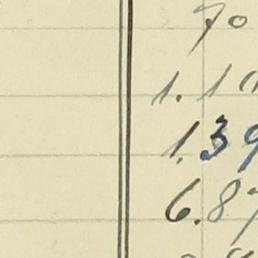 70
1.1
1.39
6.87